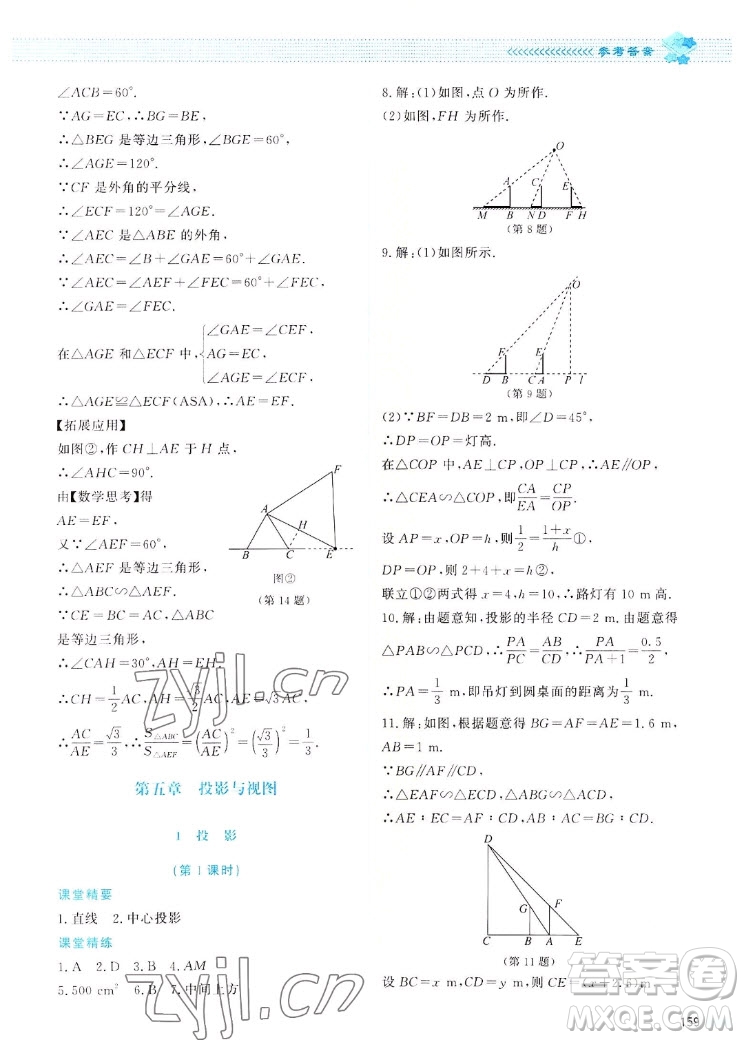 参考答案
∠ACB=60°.
∵AG=EC,∴BG=BE.
∴△BEG是等边三角形,∠BGE=60°.
∴∠AGE=120°.
∵CF是外角的平分线,
∴∠ECF=120°=∠AGE.
∵∠AEC是△ABE的外角,
∴∠AEC=∠B+∠GAE=60°+∠GAE.
∵∠AEC=∠AEF+∠FEC=60°+∠FEC,
∴∠GAE=∠FEC.
在△AGE和△ECF中,
∠GAE=∠CEF,
AG=EC,
∠AGE=∠ECF,
∴△AGE≌△ECF(ASA).∴AE=EF.
【拓展应用】
如图②,作CH⊥AE于H点,
∴∠AHC=90°.
由【数学思考】得
AE=EF,
又∵∠AEF=60°,
∴△AEF是等边三角形.
∴△ABC∽△AEF.
∵CE=BC=AC,△ABC
是等边三角形,
∴∠CAH=30°,AH=EH.
∴CH=1/2 AC,AH=√3/2 AC,AE=√3 AC.
∴AC/AE=√3/3.∴S△ABC/S△AEF=(AC/AE)²=(√3/3)²=1/3.
A
F
H
B
C
E
图②
(第14题)
第五章 投影与视图
1 投 影
(第1课时)
课堂精要
1.直线 2.中心投影
课堂精练
1.A 2.D 3.B 4.AM
5.500 cm² 6.B 7.中间上方
8.解:(1)如图,点O为所作.
(2)如图,FH为所作.
O
A C E
M B N D F H
(第8题)
9.解:(1)如图所示.
O
F E
D B C A P l
(第9题)
(2)∵BF=DB=2 m,即∠D=45°,
∴DP=OP=灯高.
在△COP中,AE⊥CP,OP⊥CP,∴AE∥OP.
∴△CEA∽△COP,即CA/EA=CP/OP.
设AP=x,OP=h,则1/2=(1+x)/h①,
DP=OP,则2+4+x=h②.
联立①②两式得x=4,h=10,∴路灯有10 m高.
10.解:由题意知,投影的半径CD=2 m,由题意得
△PAB∽△PCD,∴PA/PC=AB/CD,∴PA/(PA+1)=0.5/2
∴PA=1/3 m,即吊灯到圆桌面的距离为1/3 m.
11.解:如图,根据题意得BG=AF=AE=1.6 m,
AB=1 m.
∵BG∥AF∥CD,
∴△EAF∽△ECD,△ABG∽△ACD.
∴AE∶EC=AF∶CD,AB∶AC=BG∶CD.
D
G F
C B A E
(第11题)
设BC=x m,CD=y m,则CE=(x+2.6) m,
zyjl.cn
zyjl.cn
答案圈
159